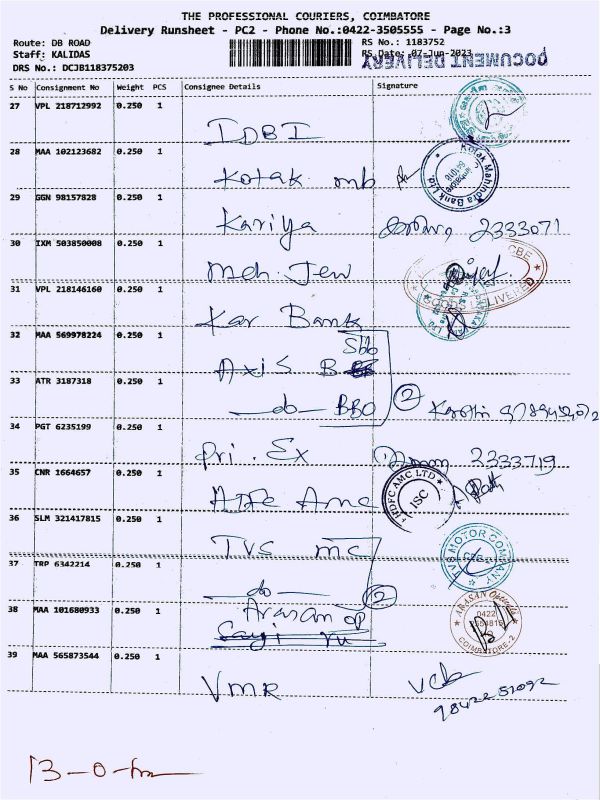 THE PROFESSIONAL COURIERS, COIMBATORE
Delivery Runsheet - PC2 - Phone No.:0422-3505555 - Page No.:3
Route: DB ROAD
RS No.: 1183752
Staff: KALIDAS
RS Date: 07-Jun-2023
DOCUMENT DELIVERY
DRS No.: DCJB118375203
S No Consignment No Weight PCS Consignee Details Signature
27 VPL 218712992 0.250 1
IDBI
28 MAA 102123682 0.250 1
Kotak mb
Kotak Mahindra Bank Ltd
29 GGN 98157828 0.250 1
Kariya 2333071
30 IXM 503850008 0.250 1
Meh. Jew
31 VPL 218146160 0.250 1
Kar Bank
32 MAA 569978224 0.250 1
Sbb
Axis B
33 ATR 3187318 0.250 1
do BBO 2
34 PGT 6235199 0.250 1
Pri. Ex 2333719
35 CNR 1664657 0.250 1
HDFC AMC LTD
ISC
36 SLM 321417815 0.250 1
TVS mc
TVS MOTOR COMPANY
37 TRP 6342214 0.250 1
do 2
38 MAA 101680933 0.250 1
Arasan op
ARASAN
0422
COIMBATORE-2
39 MAA 565873544 0.250 1
VMR
13-0-